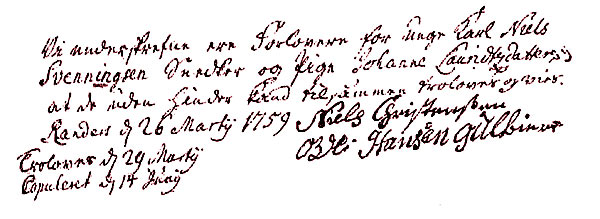 Vi underskrefne ere Forlovere for unge Karl Niels
Svenningsen Snedker og Pige Johanne Lauridsdatter
at de uden Hinder kand tilsammen troloves og vies.
Randers d 26 Martij 1759 Niels Christensen
Hansen Gulbier
Troloved d 29 Martij
Copuleret d 14 Junij